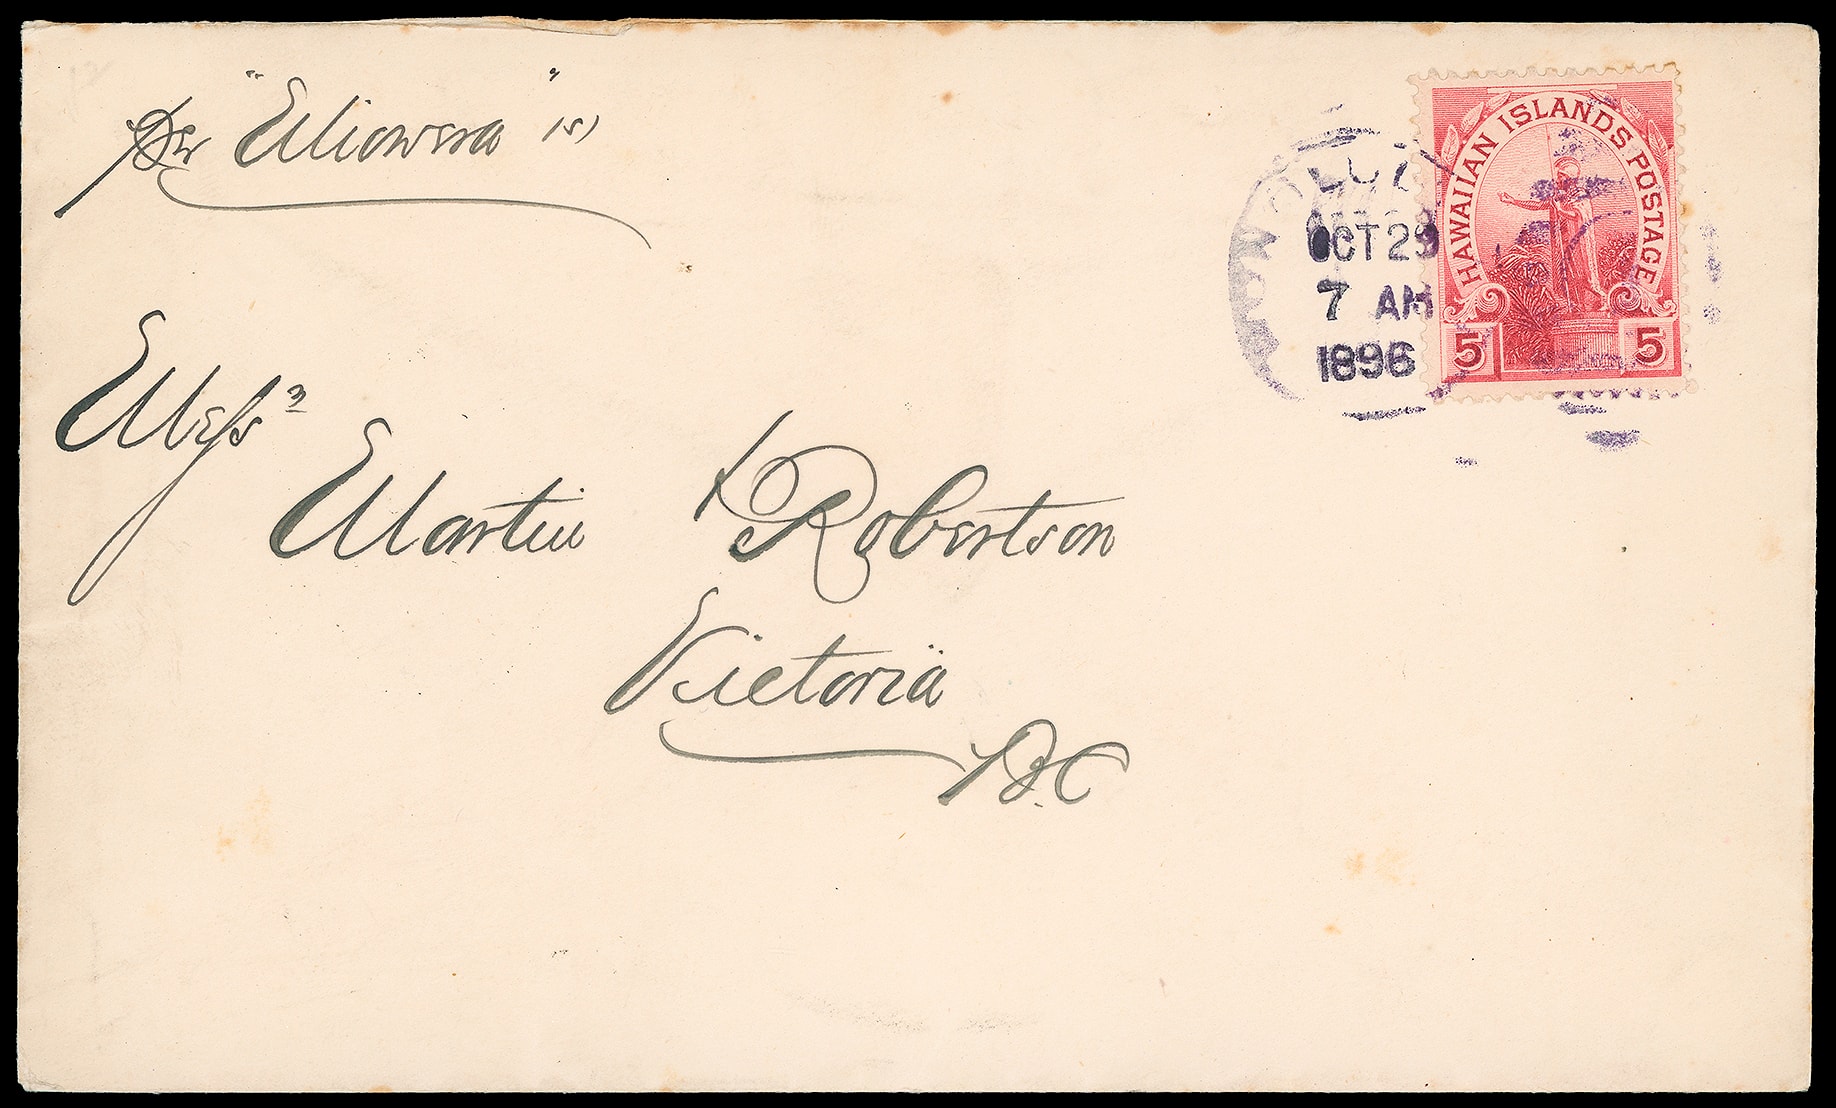 Per "Miowera" (s)
HAWAIIAN ISLANDS POSTAGE
5 5
OCT 29
7 AM
1896
Messrs
Martin & Robertson
Victoria
B.C